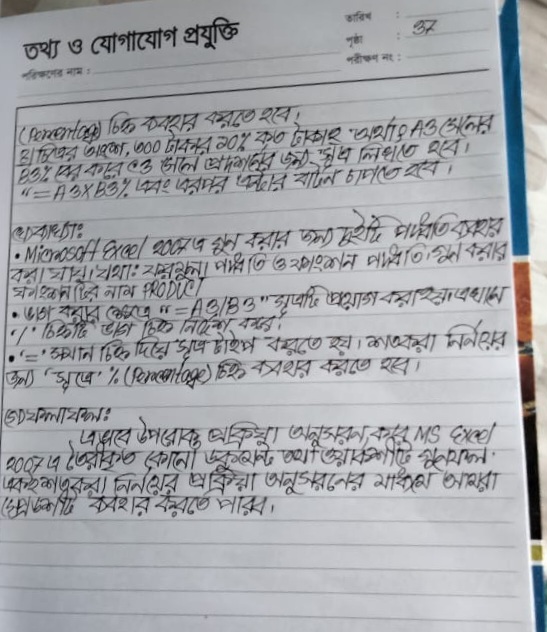 তথ্য ও যোগাযোগ প্রযুক্তি
তারিখ :
পৃষ্ঠা : 37
পরীক্ষণ নং :
পরীক্ষণের নাম :
(Percentage) চিহ্ন ব্যবহার করতে হবে।
চিত্রের অংশে, 300 টাকার 20% কত টাকা? অর্থাৎ A3 সেলের
B3% বের করে C3 সেলে প্রদর্শনের জন্য সূত্র লিখতে হবে।
"=A3XB3% এবং এরপর এন্টার বাটন চাপতে হবে।
• Microsoft Excel 2007 এ গুন করার জন্য দুইটি পদ্ধতি ব্যবহার
করা যায়। যথা: ফরমুলা পদ্ধতি ও ফাংশন পদ্ধতি। গুন করার
ফাংশনটির নাম PRODUCT
• ভাগ করার ক্ষেত্রে "=A3/B3" সূত্রটি প্রয়োগ করা হয়। এখানে
'/' চিহ্নটি ভাগ চিহ্ন নির্দেশ করে।
• '=' সমান চিহ্ন দিয়ে সূত্র টাইপ করতে হয়। শতকরা নির্নয়ের
জন্য 'সূত্রে' % (Percentage) চিহ্ন ব্যবহার করতে হবে।
ফলাফল:
এভাবে উপরোক্ত প্রক্রিয়া অনুসরন করে MS Excel
2007 এ তৈরীকৃত কোনো ডকুমেন্ট তথা ওয়ার্কশীটে গুনফল,
শতকরা নির্নয়ের প্রক্রিয়া অনুসরনের মাধ্যমে আমরা
ব্যবহার করতে পারব।